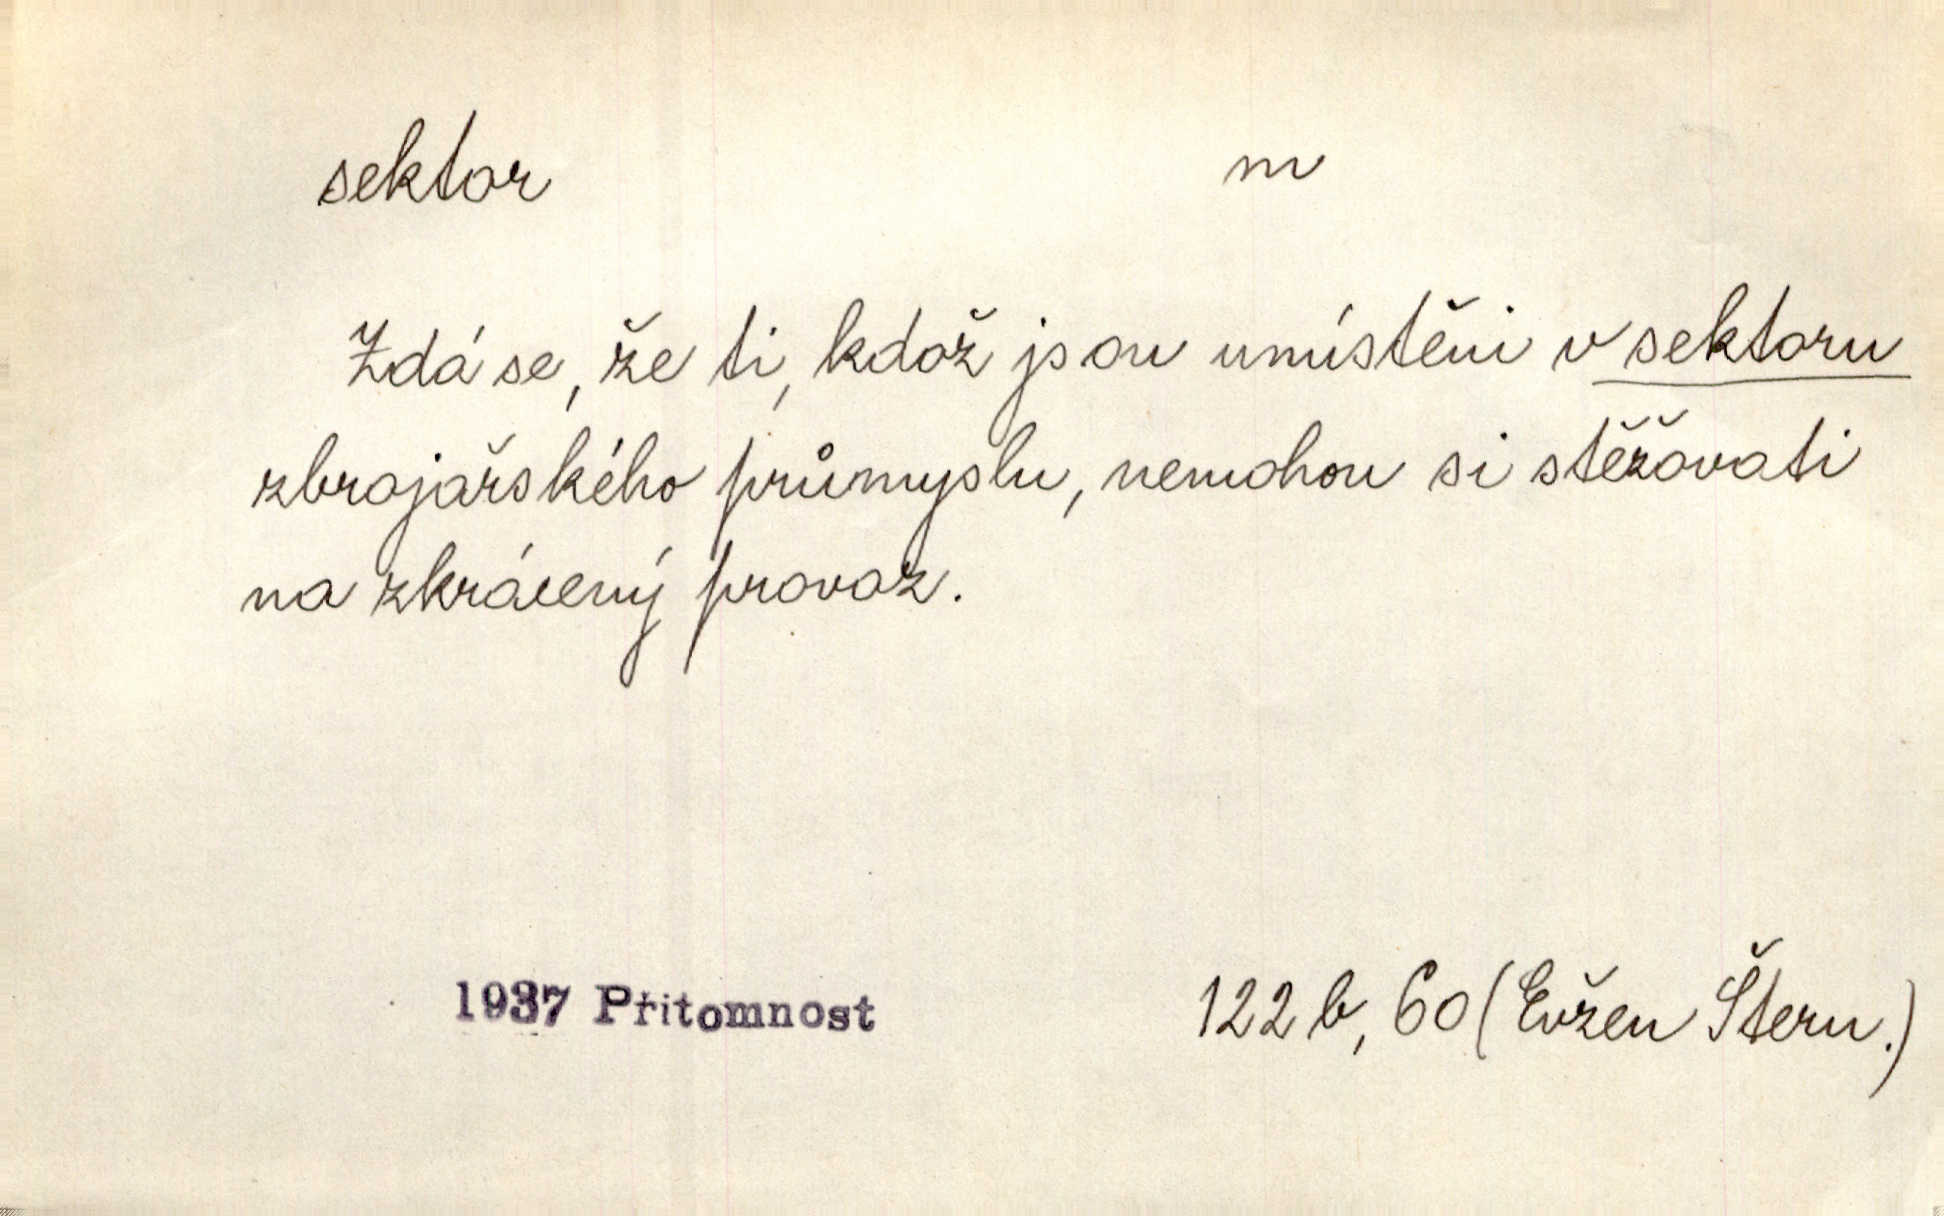 sektor m
Zdá se, že ti, kdož jsou umístěni v sektoru
zbrojařského průmyslu, nemohou si stěžovati
na zkrácený provoz.
1937 Přítomnost 122 b, 60 (Evžen Štern.)